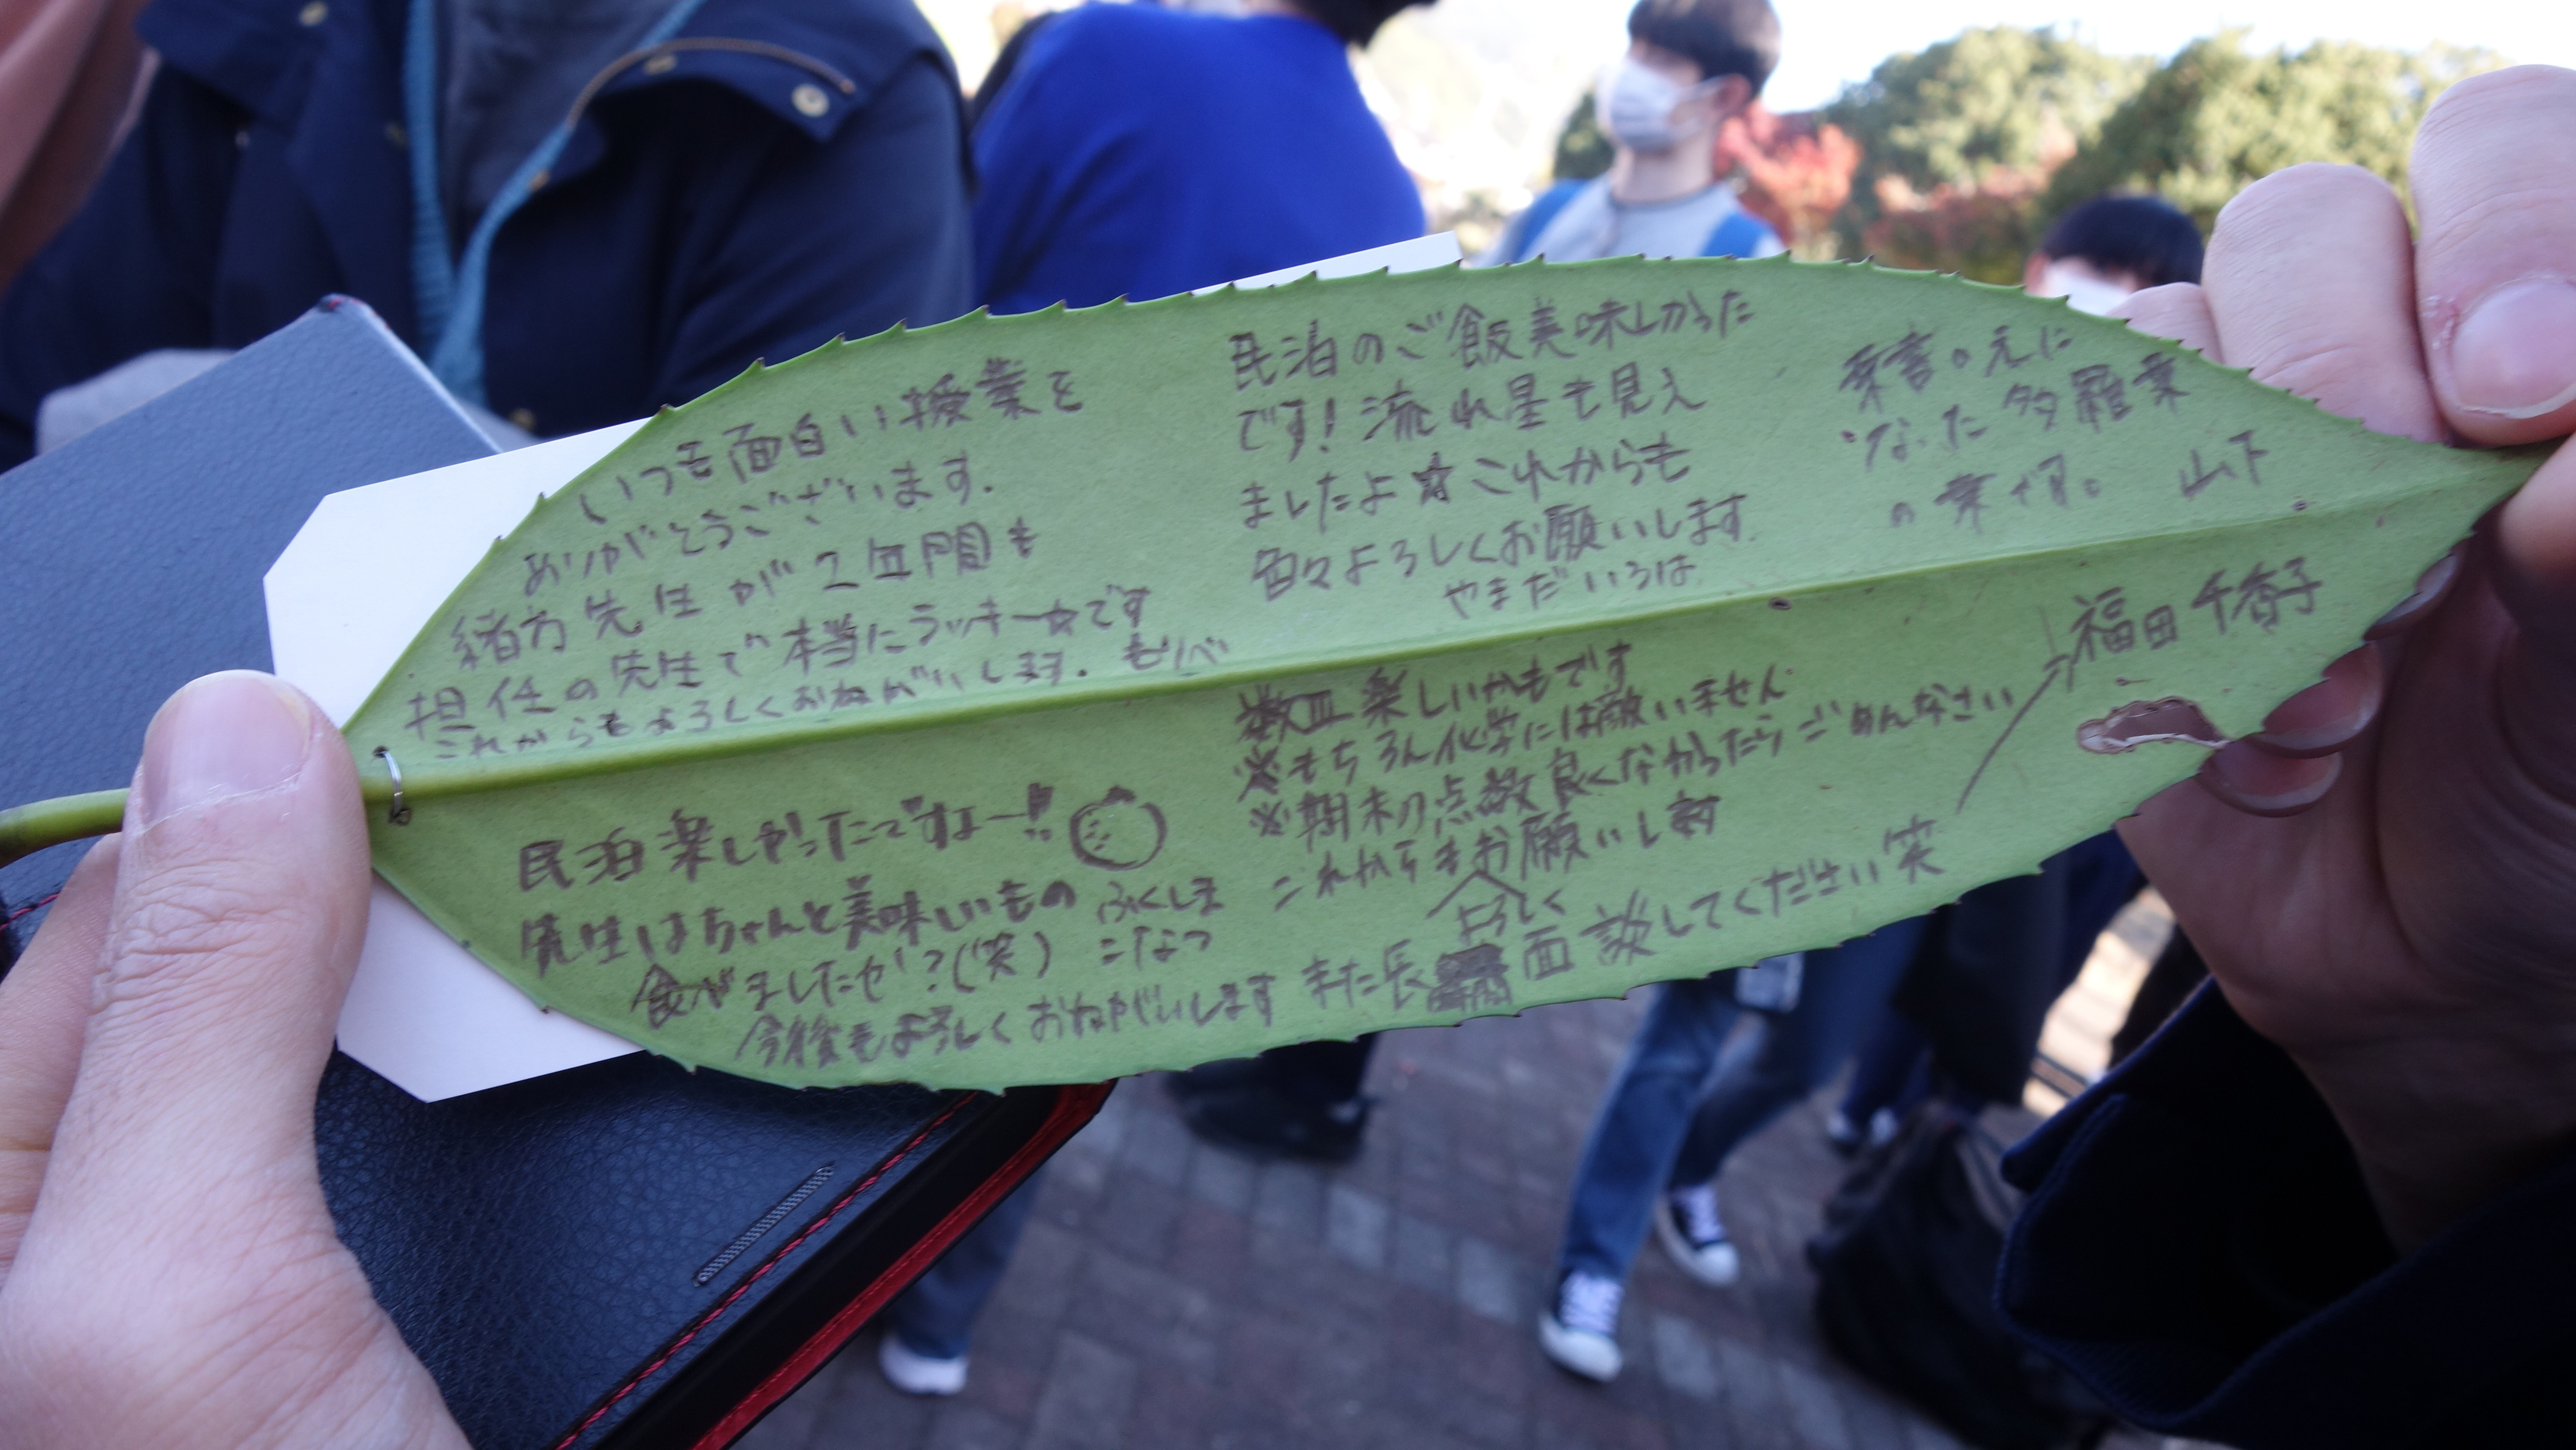 いつも面白い授業を
ありがとうございます.
緒方先生が2年間も
担任の先生で本当にラッキー☆です
これからもよろしくおねがいします. もりべ
民泊のご飯美味しかった
です!流れ星も見え
ましたよ☆これからも
色々よろしくお願いします.
やまだいろは
葉書の元に
なった多羅葉
の葉や。 山下
民泊楽しかったですよー!!
先生はちゃんと美味しいもの
食べましたか!?(笑)
ふくしま
こなつ
今後もよろしくおねがいします
数Ⅲ楽しいかもです
※もちろん化学には敵いません
※期末の点数良くなかったらごめんなさい
これからもお願いし
よろしく
また長面談してください笑
福田千香子